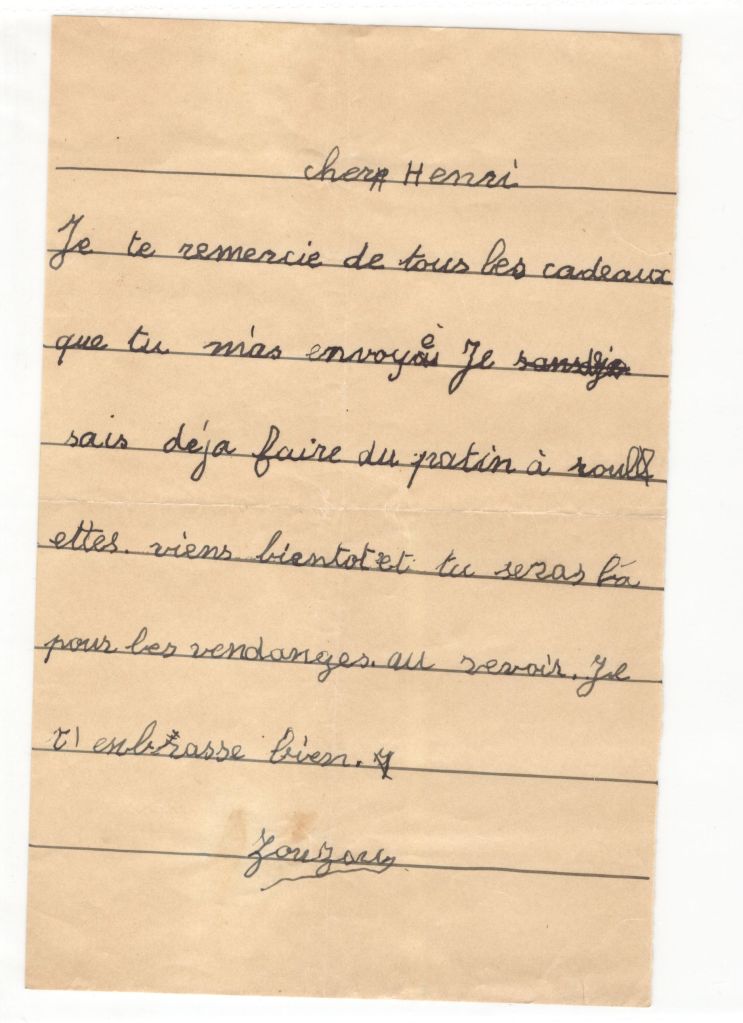 cher Henri
Je te remercie de tous les cadeaux
que tu m'as envoyé Je
sais déja faire du patin à roul
ettes. viens bientot et tu seras là
pour les vendanges. au revoir. Je
t'enbrasse bien.
Zouzou